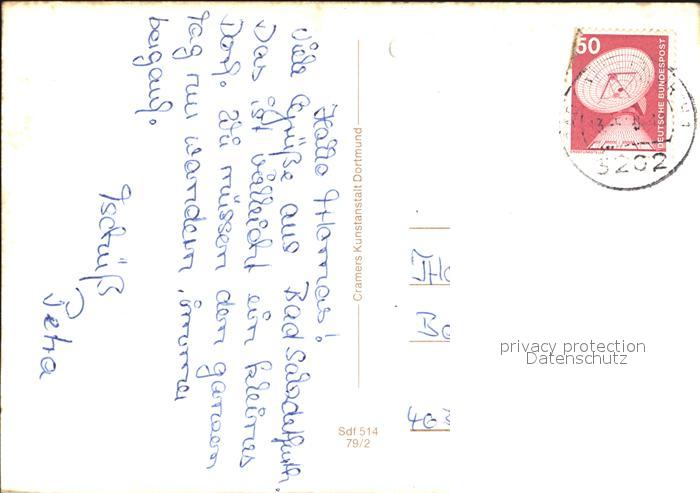 Hallo Thomas!
Viele Grüße aus Bad Salzdetfurth.
Das ist vielleicht ein kleines
Dorf. Wir müssen den ganzen
Tag nur wandern, immer
bergauf.
Tschüß
Petra
Cramers Kunstanstalt Dortmund
Sdf 514
79/2
50
DEUTSCHE BUNDESPOST
3202
40
privacy protection
Datenschutz